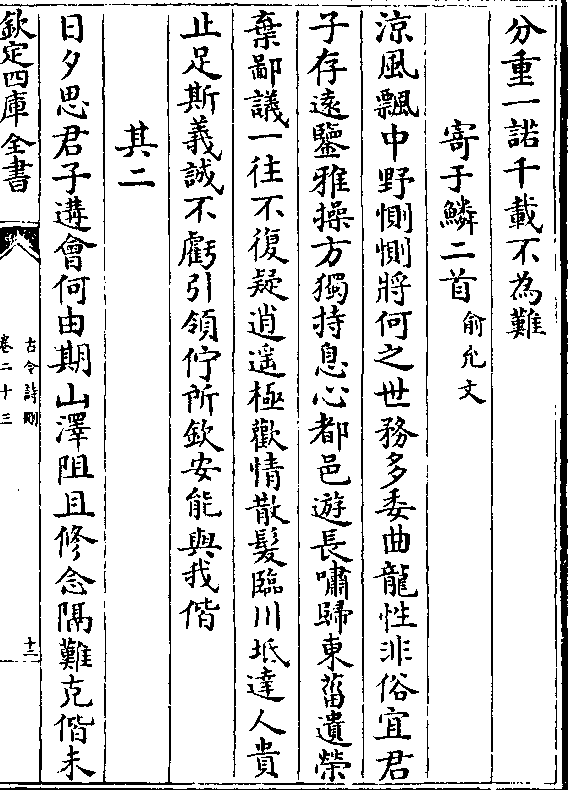 分重一諾千載不為難
寄于鱗二首 俞允文
涼風飄中野惻惻將何之世務多委曲龍性非俗宜君
子存遠鑒雅操方獨持息心都邑遊長嘯歸東菑遺榮
棄鄙議一往不復疑逍遥極歡情散髮臨川坻達人貴
止足斯義誠不虧引領佇所欽安能與我偕
其二
日夕思君子遘會何由期山澤阻且修念隔難克偕未
欽定四庫全書
古今詩刪
卷二十三
十二